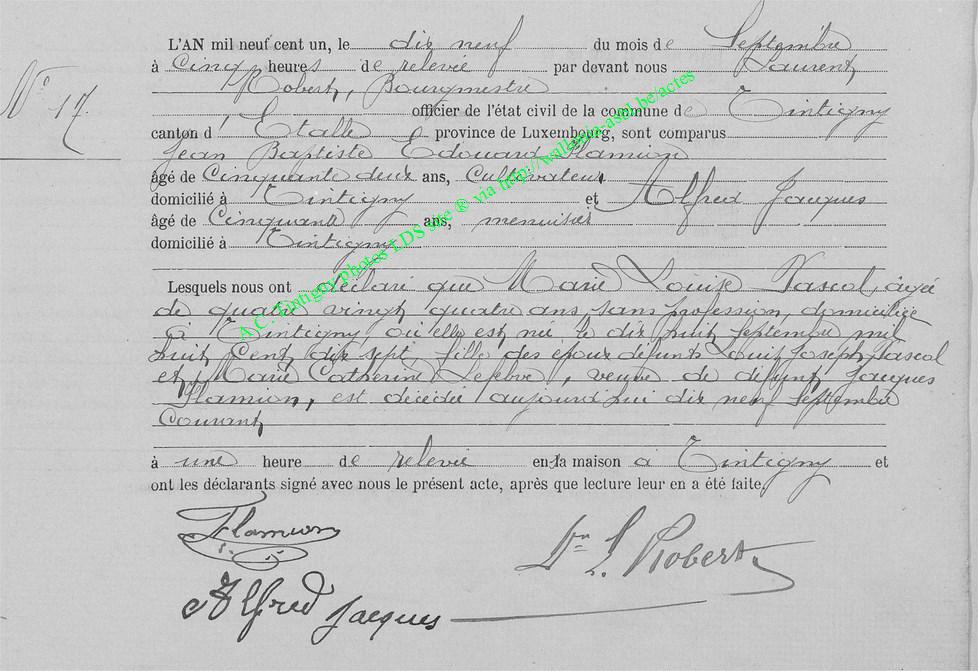 L'AN mil neuf cent un, le dix neuf du mois de Septembre
No 17.
à Cinq heures de relevée par devant nous Laurent
Robert, Bourgmestre
officier de l'état civil de la commune de Tintigny
canton d' Etalle province de Luxembourg, sont comparus
Jean Baptiste Edouard Flamion
âgé de Cinquante deux ans, Cultivateur
domicilié à Tintigny et Alfred Jacques
âgé de Cinquante ans, menuisier
domicilié à Tintigny
Lesquels nous ont déclaré que Marie Louise Pascal, âgée
de quatre vingt quatre ans, sans profession, domiciliée
à Tintigny où elle est née le dix huit septembre mil
huit cent dix sept fille des époux défunts Louis Joseph Pascal
et Marie Catherine Lefebvre, veuve de défunt Jacques
Flamion, est décédée aujourd'hui dix neuf Septembre
Courant
à une heure de relevée en la maison à Tintigny et
ont les déclarants signé avec nous le présent acte, après que lecture leur en a été faite,
Flamion
L. Robert
Alfred Jacques
A.C. Tintigny photos LDS site ® via http://wallonia-asbl.be/actes